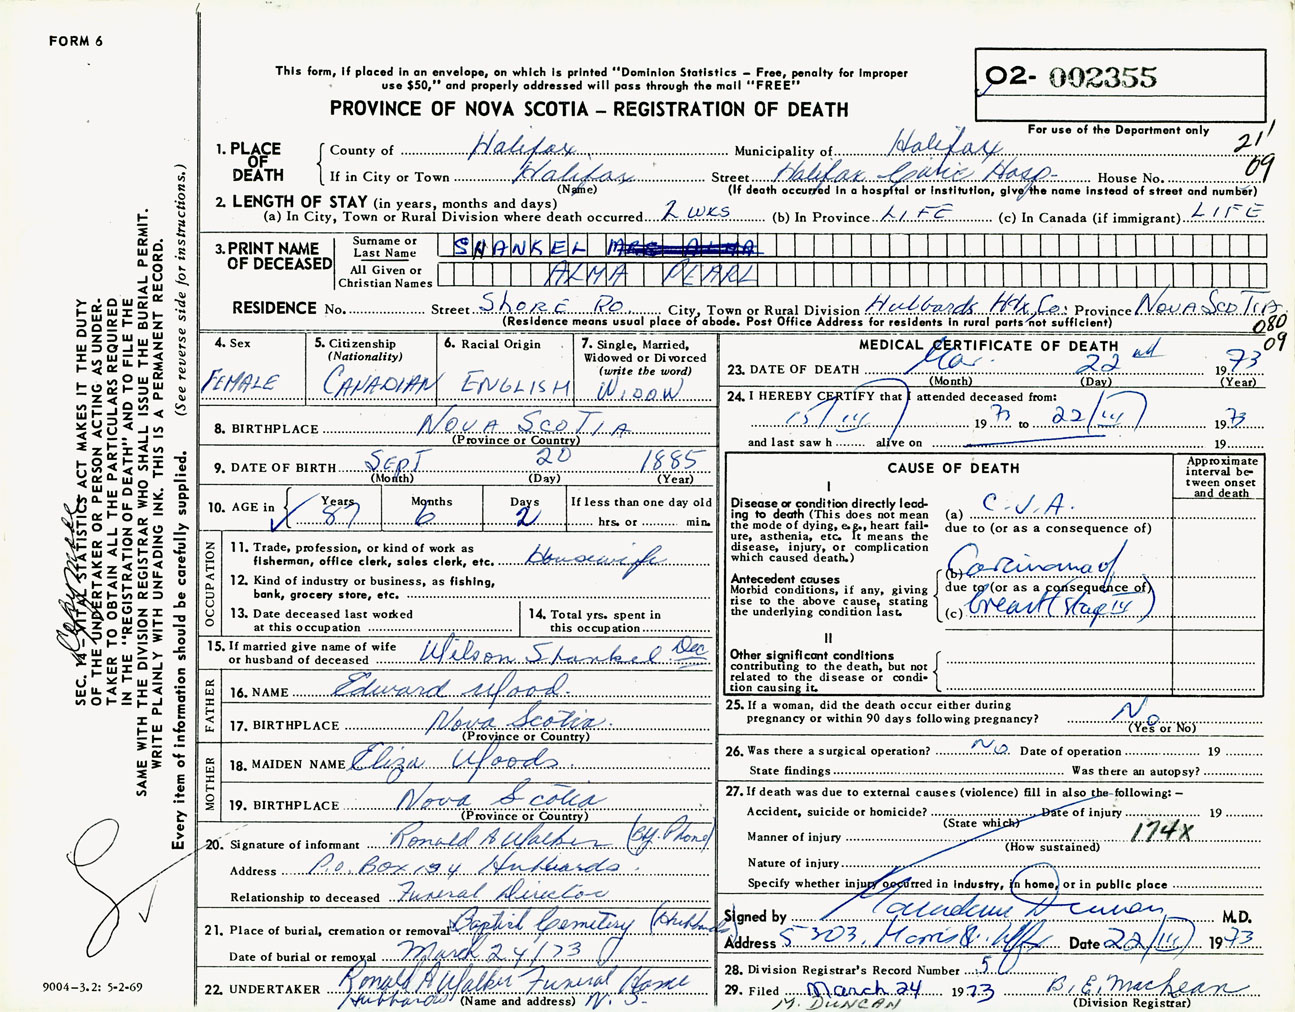 FORM 6
This form, if placed in an envelope, on which is printed "Dominion Statistics – Free, penalty for improper
use $50," and properly addressed will pass through the mail "FREE"
O2- 002355
PROVINCE OF NOVA SCOTIA – REGISTRATION OF DEATH
For use of the Department only
21'
09
1. PLACE OF DEATH
County of Halifax Municipality of Halifax
If in City or Town Halifax Street Halifax Civic Hosp. House No.
(Name) (If death occurred in a hospital or institution, give the name instead of street and number)
2. LENGTH OF STAY (in years, months and days)
(a) In City, Town or Rural Division where death occurred 2 WKS (b) In Province LIFE (c) In Canada (if immigrant) LIFE
3. PRINT NAME OF DECEASED
Surname or Last Name SHANKEL MRS ALMA
All Given or Christian Names ALMA PEARL
RESIDENCE No. Street SHORE RD City, Town or Rural Division Hubbards Hfx. Co. Province NOVA SCOTIA
(Residence means usual place of abode. Post Office Address for residents in rural parts not sufficient)
080
09
4. Sex FEMALE
5. Citizenship (Nationality) CANADIAN
6. Racial Origin ENGLISH
7. Single, Married, Widowed or Divorced (write the word) WIDOW
8. BIRTHPLACE NOVA SCOTIA
(Province or Country)
9. DATE OF BIRTH SEPT 20 1885
(Month) (Day) (Year)
10. AGE in Years 87 Months 6 Days 2
If less than one day old
hrs. or min.
OCCUPATION
11. Trade, profession, or kind of work as
fisherman, office clerk, sales clerk, etc. Housewife
12. Kind of industry or business, as fishing,
bank, grocery store, etc.
13. Date deceased last worked
at this occupation
14. Total yrs. spent in
this occupation
15. If married give name of wife
or husband of deceased Wilson Shankel Dec
FATHER
16. NAME Edward Wood
17. BIRTHPLACE Nova Scotia
(Province or Country)
MOTHER
18. MAIDEN NAME Eliza Woods
19. BIRTHPLACE Nova Scotia
(Province or Country)
20. Signature of informant Ronald A Walker (By Phone)
Address P.O. Box 194 Hubbards
Relationship to deceased Funeral Director
21. Place of burial, cremation or removal Baptist Cemetery (Hubbards)
Date of burial or removal March 24/73
22. UNDERTAKER Ronald A Walker Funeral Home
Hubbards (Name and address) N.S.
MEDICAL CERTIFICATE OF DEATH
23. DATE OF DEATH Mar. 22nd 1973
(Month) (Day) (Year)
24. I HEREBY CERTIFY that I attended deceased from:
15/III 1973 to 22/III 1973
and last saw h alive on 19
CAUSE OF DEATH
Approximate interval between onset and death
I
Disease or condition directly leading to death (This does not mean the mode of dying, e.g., heart failure, asthenia, etc. It means the disease, injury, or complication which caused death.)
(a) C.V.A.
due to (or as a consequence of)
Antecedent causes
Morbid conditions, if any, giving rise to the above cause, stating the underlying condition last.
(b) Carcinoma of
due to (or as a consequence of)
(c) breast (stage IV)
II
Other significant conditions
contributing to the death, but not related to the disease or condition causing it.
25. If a woman, did the death occur either during
pregnancy or within 90 days following pregnancy? No
(Yes or No)
26. Was there a surgical operation? No. Date of operation 19
State findings Was there an autopsy?
27. If death was due to external causes (violence) fill in also the following: –
Accident, suicide or homicide? Date of injury 19
(State which)
Manner of injury 174X
(How sustained)
Nature of injury
Specify whether injury occurred in industry, in home, or in public place
Signed by M.D.
Address 5303, Morris St. Hfx Date 22/III 1973
28. Division Registrar's Record Number 5
29. Filed March 24 1973 B. E. MacLean
M. DUNCAN (Division Registrar)
SEC. 14. VITAL STATISTICS ACT MAKES IT THE DUTY
OF THE UNDERTAKER OR PERSON ACTING AS UNDER-
TAKER TO OBTAIN ALL THE PARTICULARS REQUIRED
IN THE "REGISTRATION OF DEATH" AND TO FILE THE
SAME WITH THE DIVISION REGISTRAR WHO SHALL ISSUE THE BURIAL PERMIT.
WRITE PLAINLY WITH UNFADING INK. THIS IS A PERMANENT RECORD.
Every item of information should be carefully supplied. (See reverse side for instructions.)
9004-3.2: 5-2-69